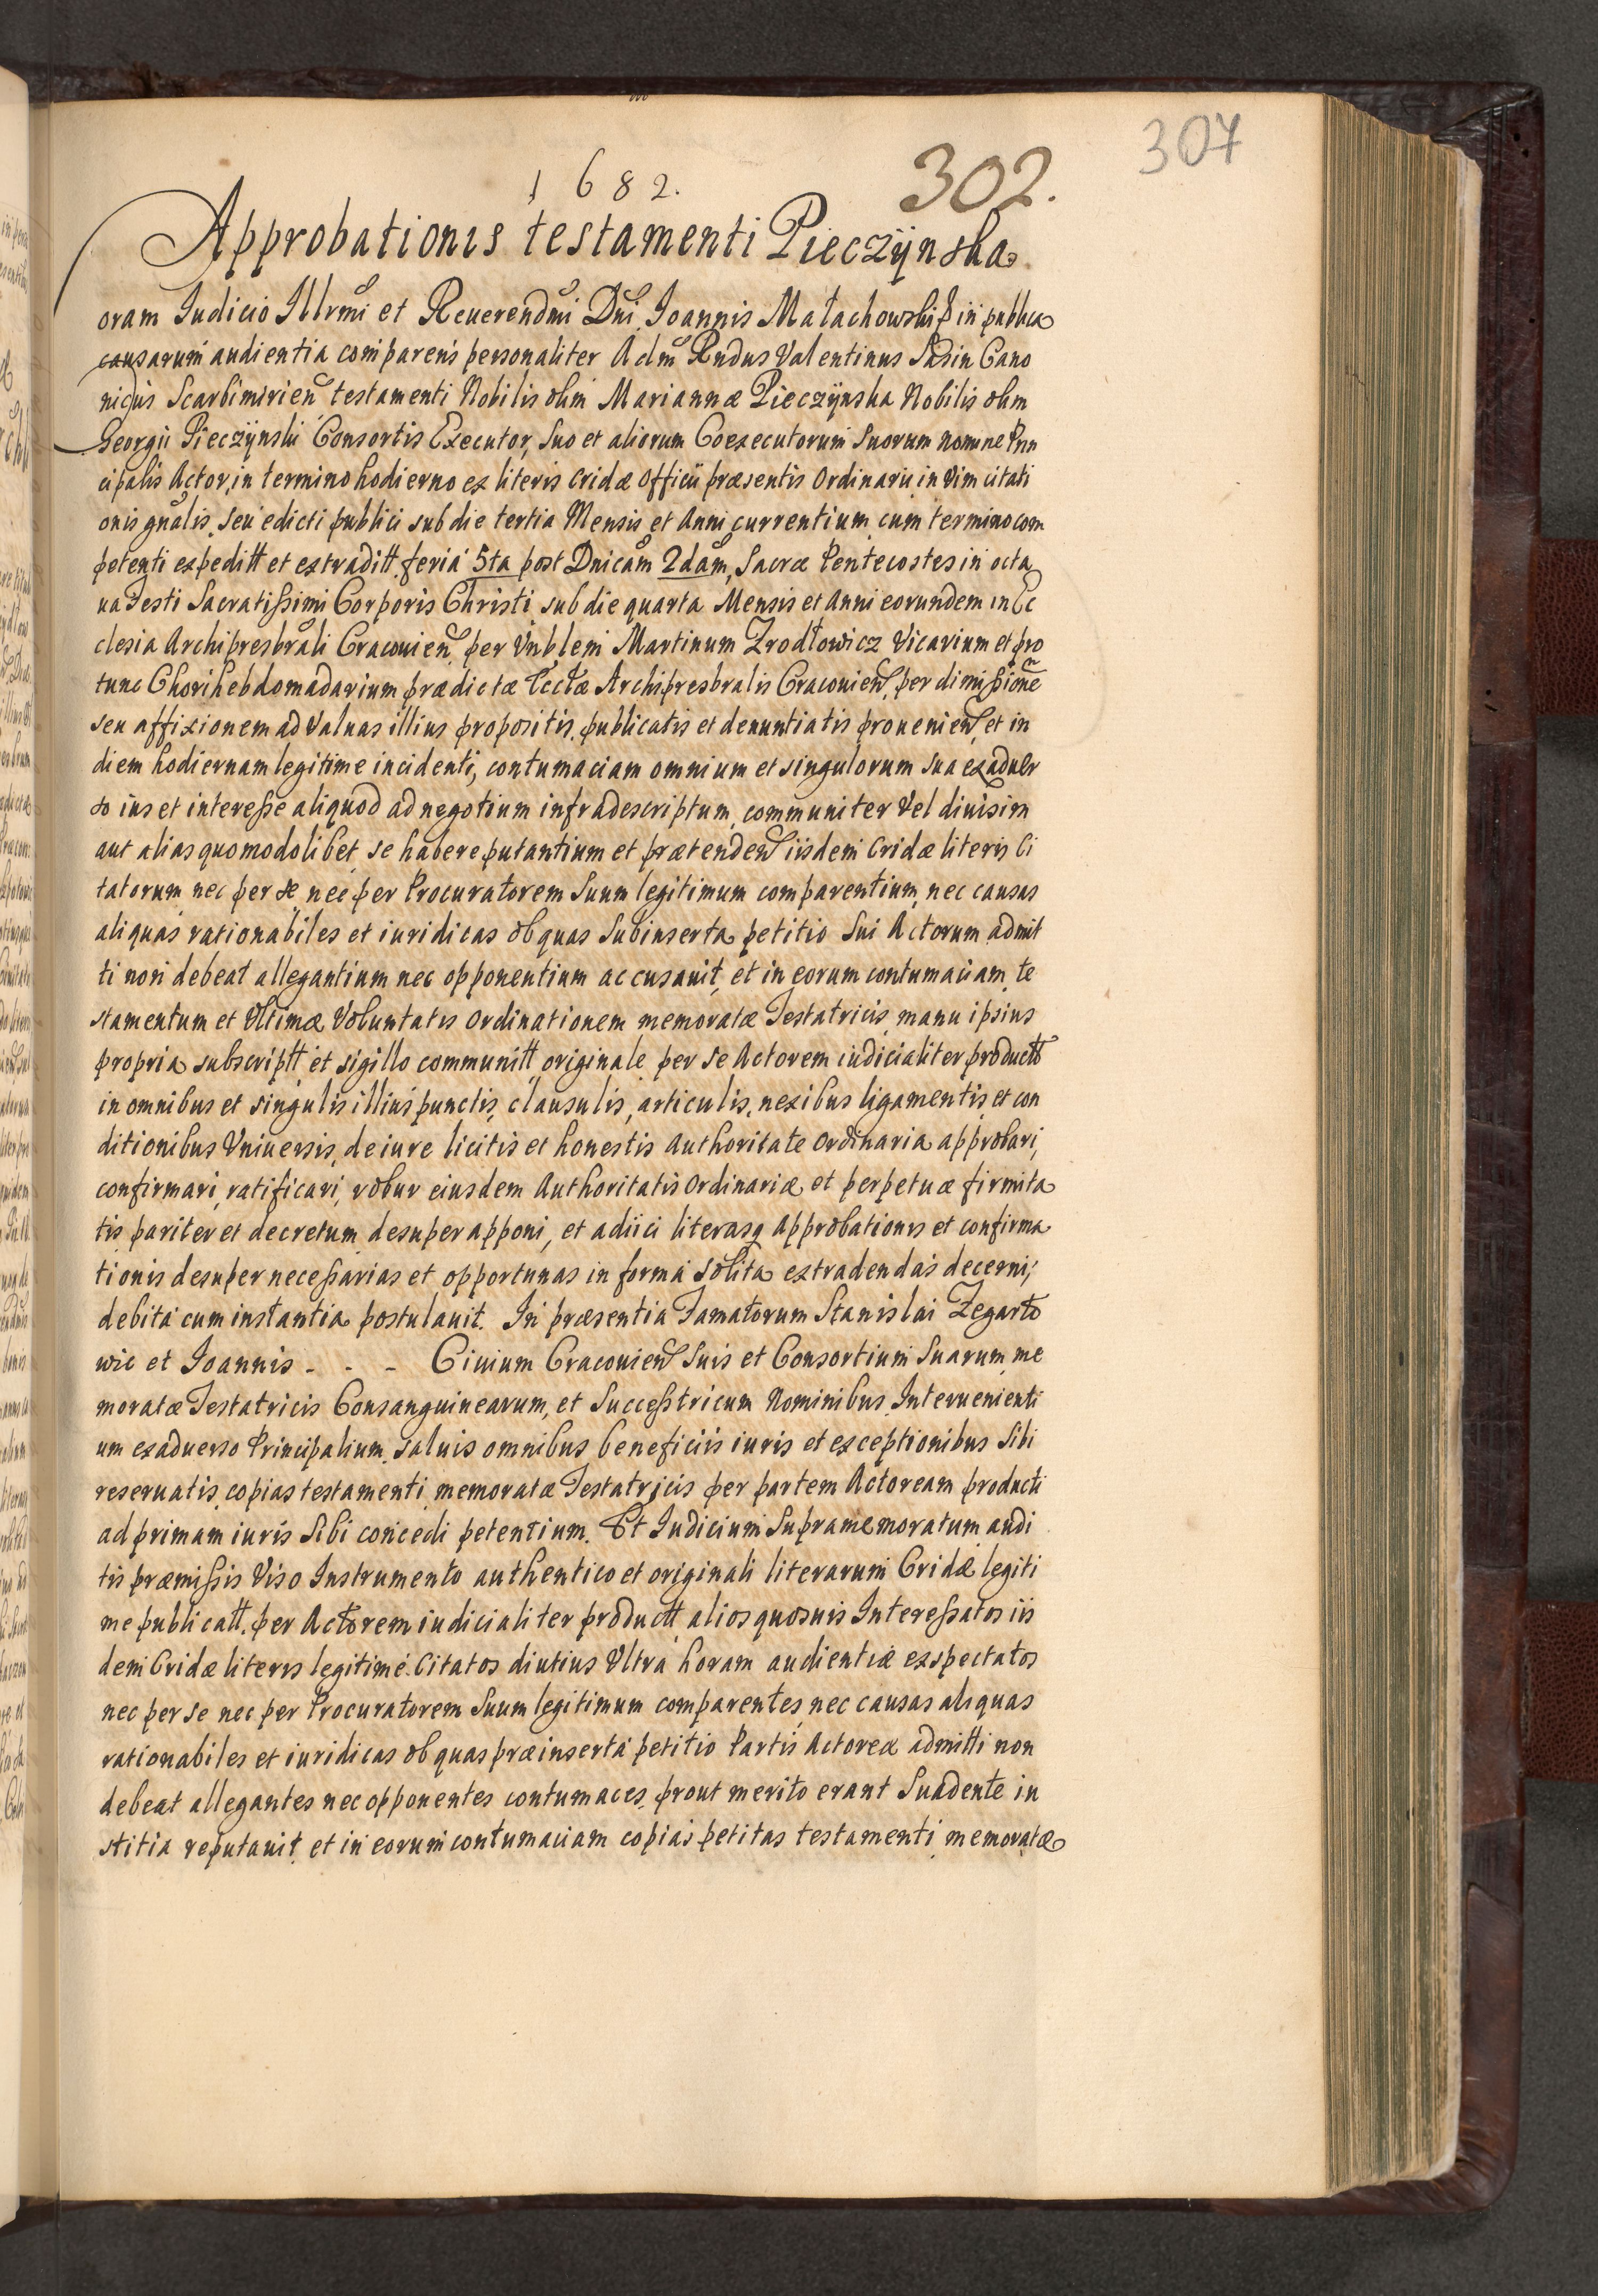 307
1682. 302.
Approbationis testamenti Pieczÿnska
Coram Iudicio Illrmi et Reuerendmi Dni Ioannis Małachowski in publica
causarum audientia comparens personaliter Adm Rndus Valentinus Sasin Cano
nicus Scarbimirien testamenti Nobilis olim Mariannæ Pieczÿnska Nobilis olim
Georgii Pieczÿnski Consortis Executor, suo et aliorum Coexecutorum suorum nomine Prin
cipalis Actor, in termino hodierno ex literis Cridæ Officii præsentis Ordinarii in vim citati
onis gnalis, seu edicti publici sub die tertia Mensis et Anni currentium cum termino com
petenti expeditt et extraditt feria 5ta post Dnicam 2dam, Sacræ Pentecostes in octa
ua Festi Sacratissimi Corporis Christi sub die quarta Mensis et Anni eorundem in Ec
clesia Archipresbrali Cracouien per Vnblem Martinum Zrodłowicz Vicarium et pro
tunc Chori hebdomadarium prædictæ Ecctæ Archipresbralis Cracouien, per dimissione
seu affixionem ad Valuas illius propositis, publicatis et denuntiatis prouenien, et in
diem hodiernam legitime incidenti, contumaciam omnium et singulorum sua ex aduer
so ius et interesse aliquod ad negotium infradescriptum, communiter vel diuisim
aut alias quomodolibet se habere putantium et prætenden iisdem Cridæ literis Ci
tatorum nec per se nec per Procuratorem suum legitimum comparentium, nec causas
aliquas rationabiles et iuridicas ob quas subinserta petitio sui Actorum admit
ti non debeat allegantium nec opponentium accusauit, et in eorum contumaciam te
stamentum et Vltimæ Voluntatis Ordinationem memoratæ Testatricis manu ipsius
propria subscriptt et sigillo communitt originale per se Actorem iudicialiter productt
in omnibus et singulis illius punctis, clausulis, articulis, nexibus ligamentis et con
ditionibus Vniuersis, de iure licitis et honestis Authoritate Ordinaria approbari,
confirmari, ratificari, robur eiusdem Authoritatis Ordinariæ et perpetuæ firmita
tis pariter et decretum desuper apponi, et adiici literasq approbationis et confirma
tionis desuper necessarias et opportunas in forma solita extradendas decerni,
debita cum instantia postulauit. In præsentia Famatorum Stanislai Zegarto
wic et Ioannis - - - Ciuium Cracouien suis et Consortium suarum me
moratæ Testatricis Consanguinearum, et Successtricum Nominibus Interuenienti
um ex aduerso Principalium, saluis omnibus beneficiis iuris et exceptionibus sibi
reseruatis, copias testamenti memoratæ Testatricis per partem Actoream producti
ad primam iuris sibi concedi petentium. Et Iudicium supramemoratum audi
tis præmissis Viso Instrumento authentico et originali literarum Cridæ legiti
me publicatt, per Actorem iudicialiter productt alios quosuis Interessatos iis
dem Cridæ literis legitime Citatos diutius Vltra horam audientiæ exspectatos
nec per se nec per Procuratorem suum legitimum comparentes nec causas aliquas
rationabiles et iuridicas ob quas præinserta petitio Partis Actoreæ admitti non
debeat allegantes nec opponentes contumaces, prout merito erant suadente iu
stitia reputauit et in eorum contumaciam copias petitas testamenti memoratæ